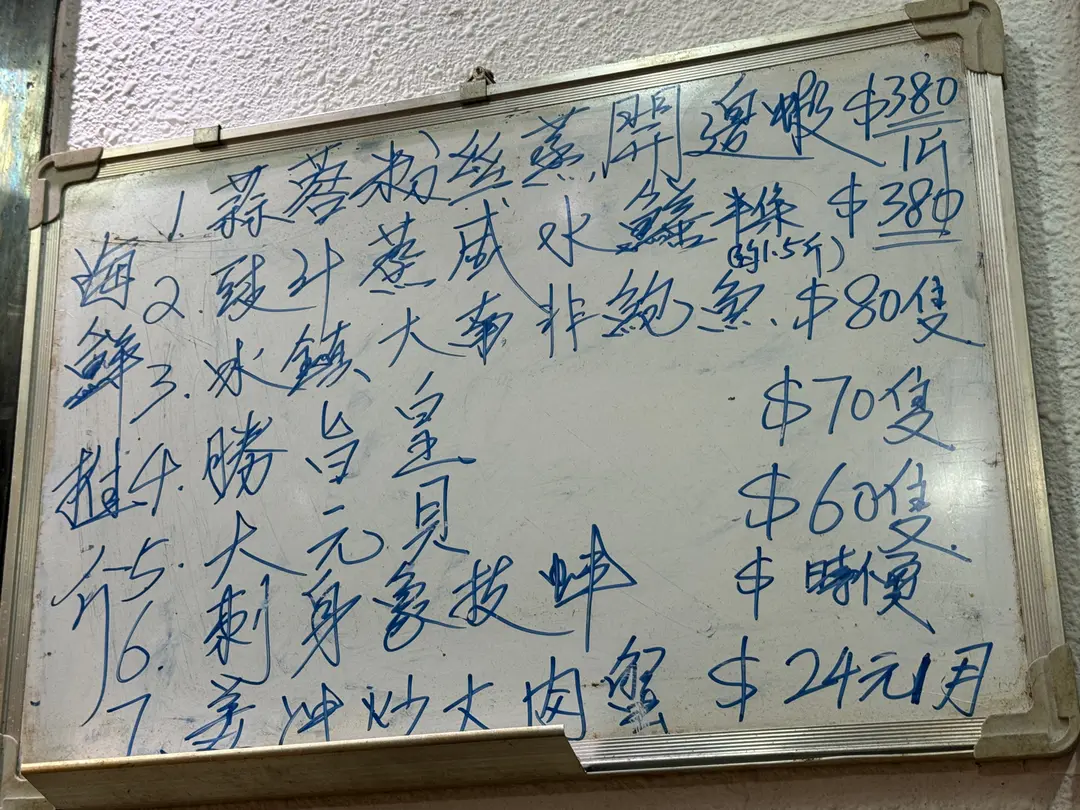 海鮮推介
1. 蒜蓉粉丝蒸開邊蝦 $380/1斤
2. 豉汁蒸咸水鱔半条 $380
(約1.5斤)
3. 冰鎮大南非鮑魚. $80隻
4. 勝旨皇 $70隻
5. 大元貝 $60隻
6. 刺身象拔蚌 $時價
7. 姜冲炒大肉蟹 $24元1